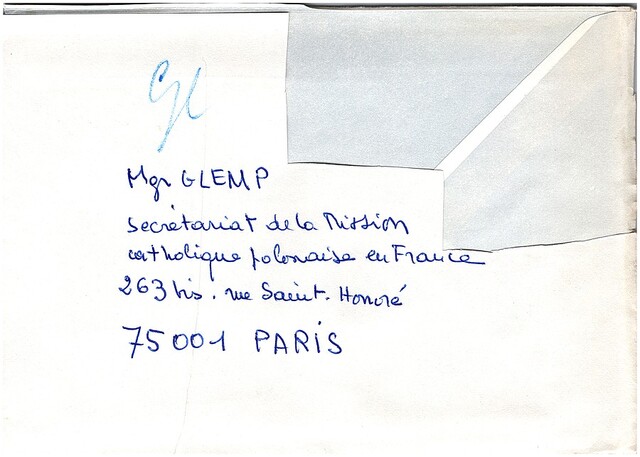 Mgr GLEMP
secrétariat de la Mission
catholique polonaise en France
263 bis. rue Saint-Honoré
75001 PARIS